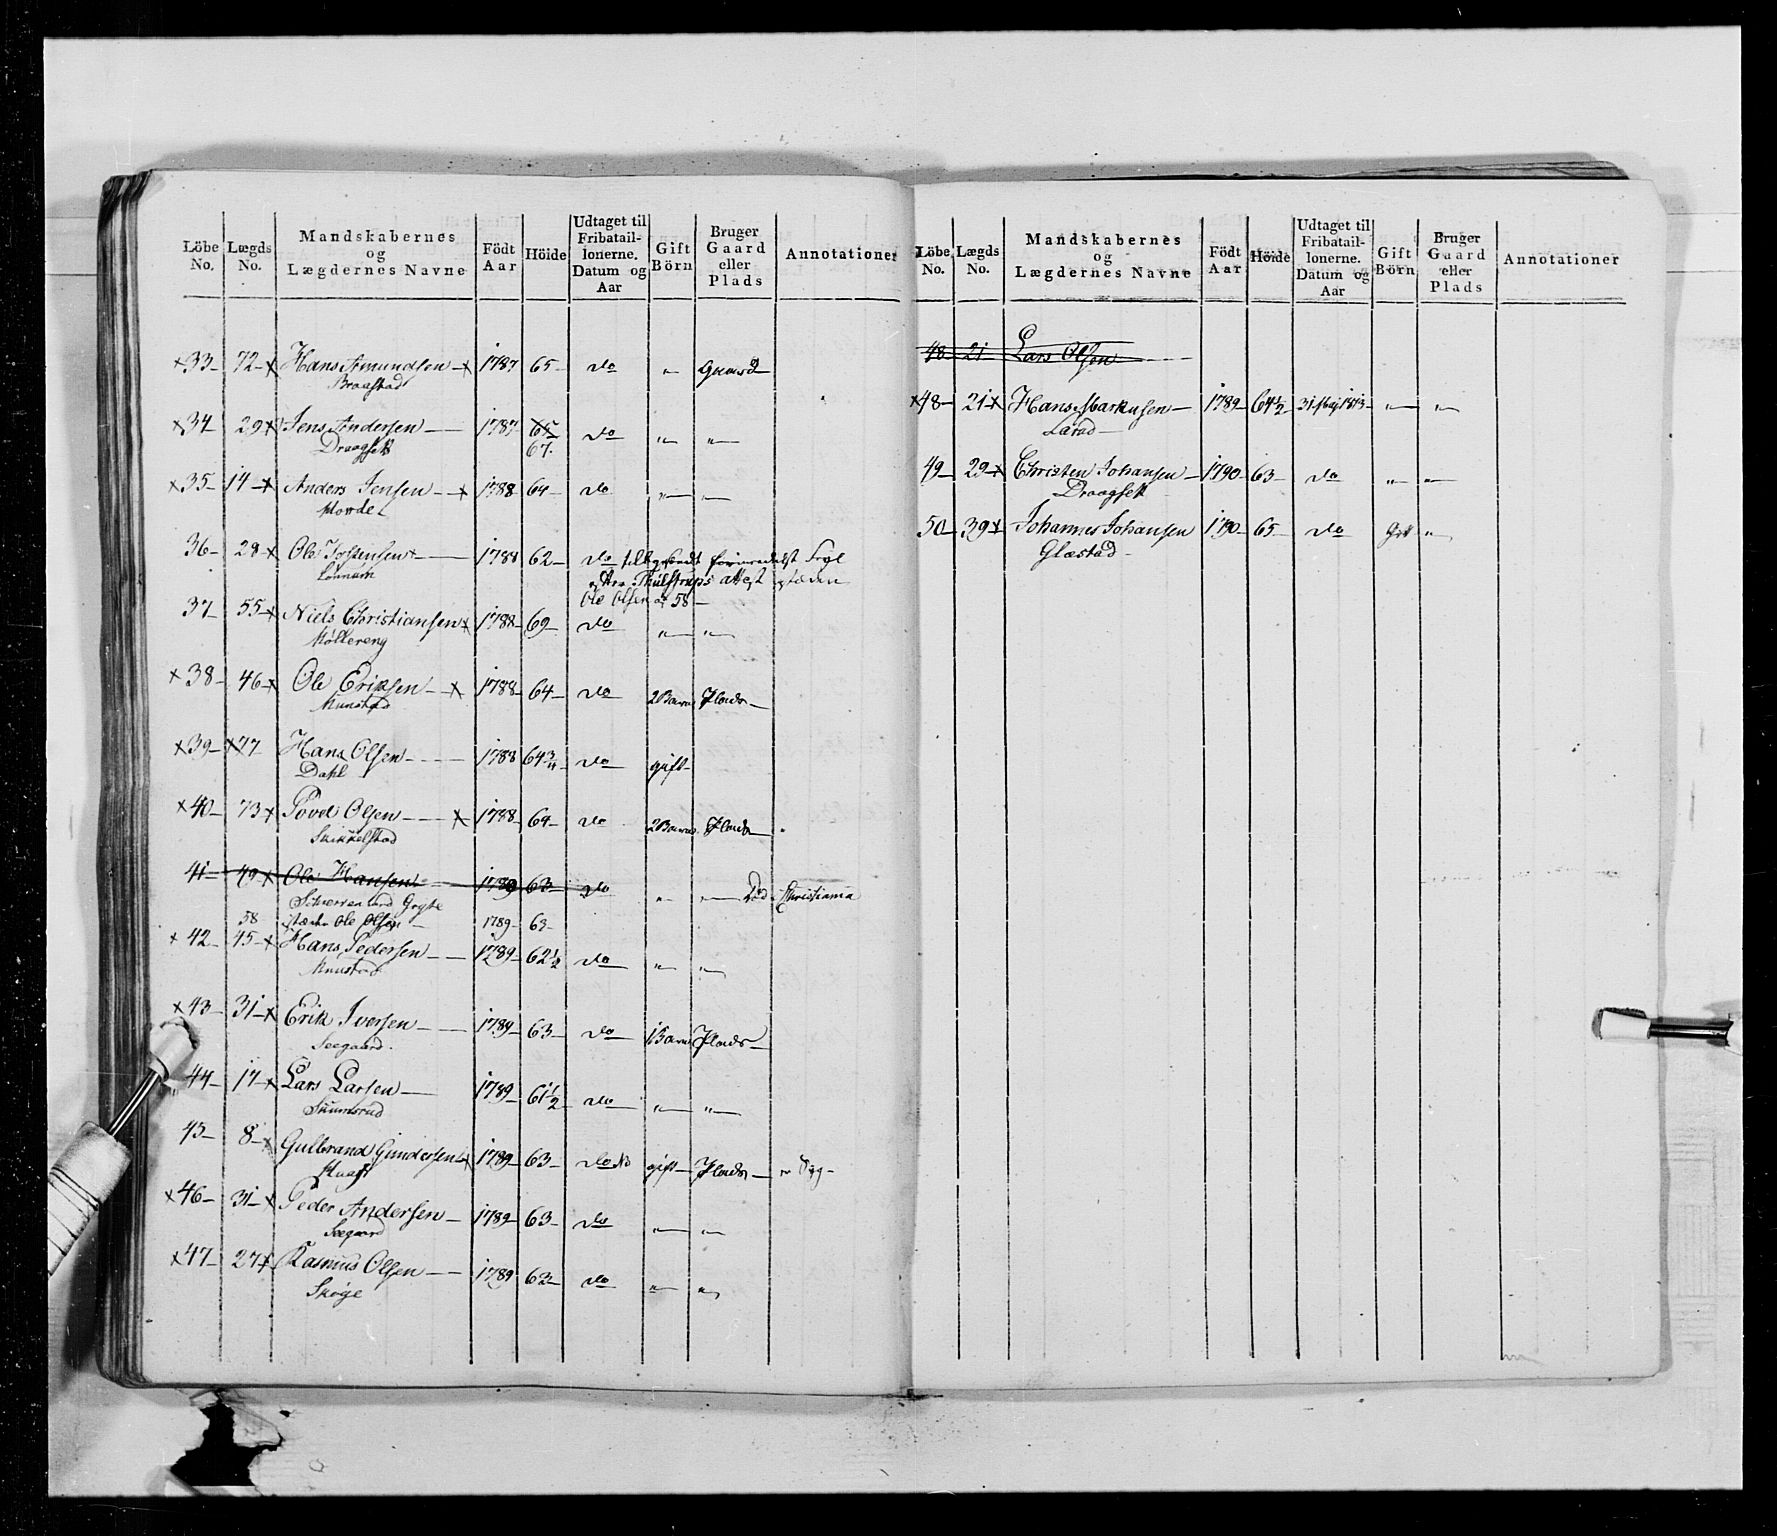 Löbe No. | Lægds No. | Mandskabernes og Lægdernes Navne | Födt Aar | Höide | Udtaget til Fribatail-lonerne. Datum og Aar | Gift Börn | Bruger Gaard eller Plads | Annotationer
×33 – 72 – × Hans Amundsen – × 1787 65 – do " Gaard
Braastad
×34 29 × Jens Andersen – 1787 65 do " "
Draagsett 67.
×35 – 14 – × Anders Jensen – × 1788 64 – do " "
36 – 28 – × Ole – 1788 62 – do
Ole Olsen af 58 –
37 55 – × Niels Christiansen × 1788 – 69 – do " "
Möllereng
×38 – 46 – × Ole Eriksen – × 1788 – 64 – do 2 Barn Plads –
Munstad
×39 – ×77 Hans Olsen – – – 1788 64 3/4 – do gift –
Dahl
×40 – 73 × Povel Olsen – – – × 1788 – 64 – do 2 Barn Plads –
Snikkelstad
41 – 49 × Ole Hansen – 1789 63 – do " " Död Christiania
58 Ole Olsen – 1789 – 63 –
×42 – 45 – × Hans Pedersen – 1789 – 62 1/2 do " "
Munstad
×43 – 31 – × Erik Iversen – 1789 – 63 – do 1 Barn Plads –
Seegaard.
44 – 17 – × Lars Larsen – 1789 – 61 1/2 do " "
45 – 8 – × Gulbrand Gundersen × 1789 – 63 – do gift – Plads –
×46 – 31 – × Peder Andersen – 1789 – 63 – do " "
Seegaard
×47 – 27 × Rasmus Olsen – 1789 62 – do " "
Skøye
Löbe No. | Lægds No. | Mandskabernes og Lægdernes Navne | Födt Aar | Höide | Udtaget til Fribatail-lonerne. Datum og Aar | Gift Börn | Bruger Gaard eller Plads | Annotationer
48 – 21 – Lars Olsen
×48 – 21 – × Hans Markusen – 1789 – 64 1/2 31 Maj 1813 – " "
49 – 29 – × Christen Johansen – 1790 – 63 – do " "
Draagsett
50 – 39 × Johannes Johansen 1790 – 65 – do Gift "
Glæstad –